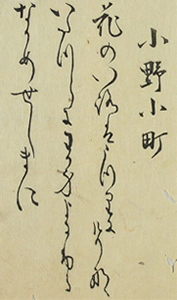 小野小町
花のいろはうつりにけりな
いたつらにわか身よにふる
なかめせしまに